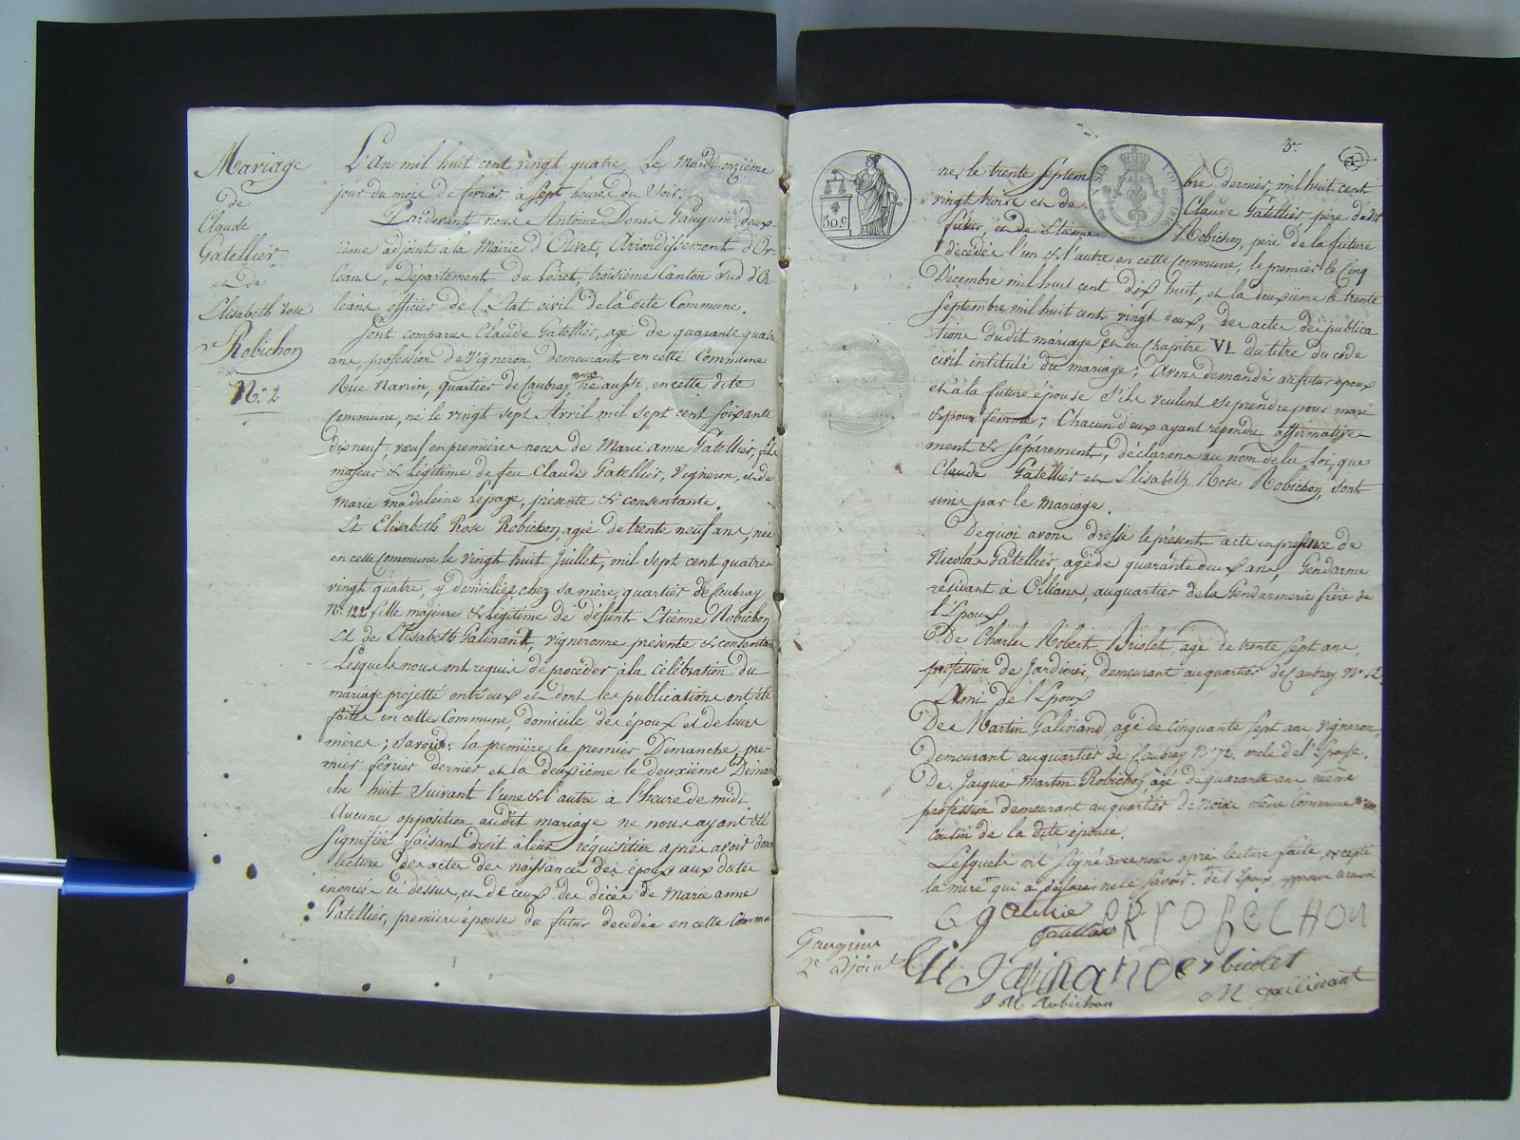 Mariage
de
Claude
Gatellier
et de
Elisabeth Rose
Robichon
N.° 2
L'an mil huit cent vingt quatre, Le Mardi onzième
jour du mois de fevrier à sept heures du Soir.
Pardevant nous Antoine Denis Gaugiran deux-
ième adjoint à la Mairie d'Olivet, Arrondissement d'Or
leans, Département du Loiret, troisième Canton sud d'Or
leans officier de l'Etat civil de la dite Commune.
Sont comparus Claude Gatellier, agé de quarante quatre
ans, profession de Vigneron, demeurant en cette Commune
Rue Marin, quartier de Caubray, né aussi en cette dite
Commune, né le vingt sept Avril mil sept cent soixante
dix neuf, veuf en premières noces de Marie anne Gatellier, fils
majeur & legitime de feu Claude Gatellier, Vigneron, et de
marie madeleine Lepage, présente & consentante.
Et Elisabeth Rose Robichon, agée de trente neuf ans née
en cette Commune le vingt huit Juillet, mil sept cent quatre
vingt quatre, y domiciliée chez sa mère, quartier de Caubray
N.° 122 fille majeure & legitime de défunt Etienne Robichon
Et de Elisabeth Galinant, vigneronne présente & consentante
Lesquels nous ont requis de procéder à la célébration du
mariage projetté entr'eux et dont les publications ont été
faites en cette Commune, domicile des époux et de leurs
mères; savoir: la première le premier Dimanche, pre-
mier février dernier et la deuxième le deuxième Diman
che huit suivant l'une & l'autre à l'heure de midi
Aucune opposition audit mariage ne nous ayant été
signifiée faisant droit à leur réquisition après avoir donné
lecture des actes de naissance des époux aux dates
énoncées ci dessus, et de ceux des décès de Marie anne
Gatellier, première épouse du futur decedée en cette Commu
3.e
ne, le trente septem bre dernier, mil huit cent
vingt trois et de Claude Gatellier père dudit
futur, et de Etienne Robichon, père de la future
décédés l'un & l'autre en cette commune, le premier le Cinq
Decembre mil huit cent dix huit, et la deuxième le trente
Septembre mil huit cent vingt deux, des actes de publica
tions dudit mariage, et du chapitre VI du titre du code
civil intitulé du mariage; Avons demandé au futur époux
et à la future épouse s'ils veulent se prendre pour mari
& pour femme; Chacun d'eux ayant répondu affirmative-
ment & séparément, déclarons au nom de la loi, que
Claude Gatellier et Elisabeth Rose Robichon, sont
unis par le mariage.
De quoi avons dressé le présent acte en présence de
Nicolas Gatellier, agé de quarante deux ans, Gendarme
résidant à Orléans, au quartier de la Gendarmerie frère de
l'Epoux
De Charles Robert Briolet agé de trente sept ans,
profession de Jardinier, demeurant au quartier de Caubray N.°
Ami de l'Epoux
De Martin Galinand, agé de cinquante sept ans vigneron,
demeurant au quartier de Caubray N.° 72. oncle de l'épouse.
De Jacques Martin Robichon, agé de quarante ans même
profession demeurant au quartier de Noire même Commune
Cousin de la dite épouse.
Lesquels ont signé avec nous après lecture faite, excepté
la mère qui a déclaré ne le savoir.
C gatellié
Gatellier
ER ROBECHON
Gaugiran
2.e adjoint
Eli Galinand
C r briolet
J M Robichon
M galinant
50.c